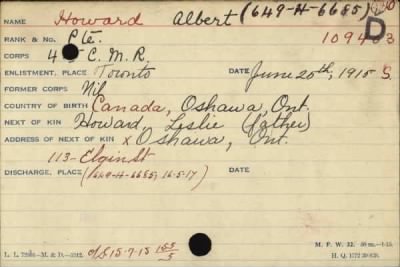 Howard Albert (649-H-6655)
D
RANK & No. Pte. 109403
CORPS 4 C. M. R.
ENLISTMENT, PLACE Toronto DATE June 25th, 1915 S.
FORMER CORPS Nil
COUNTRY OF BIRTH Canada, Oshawa, Ont.
NEXT OF KIN Howard, Leslie (Father)
ADDRESS OF NEXT OF KIN x Oshawa, Ont.
113-Elgin St
DISCHARGE, PLACE (649-H-6655, 16-5-17) DATE
O/S 15-7-15 155/5
M. F. W. 22. 50 m.-1-15.
L. L. M. & D.
H. Q. 1772 39-839.